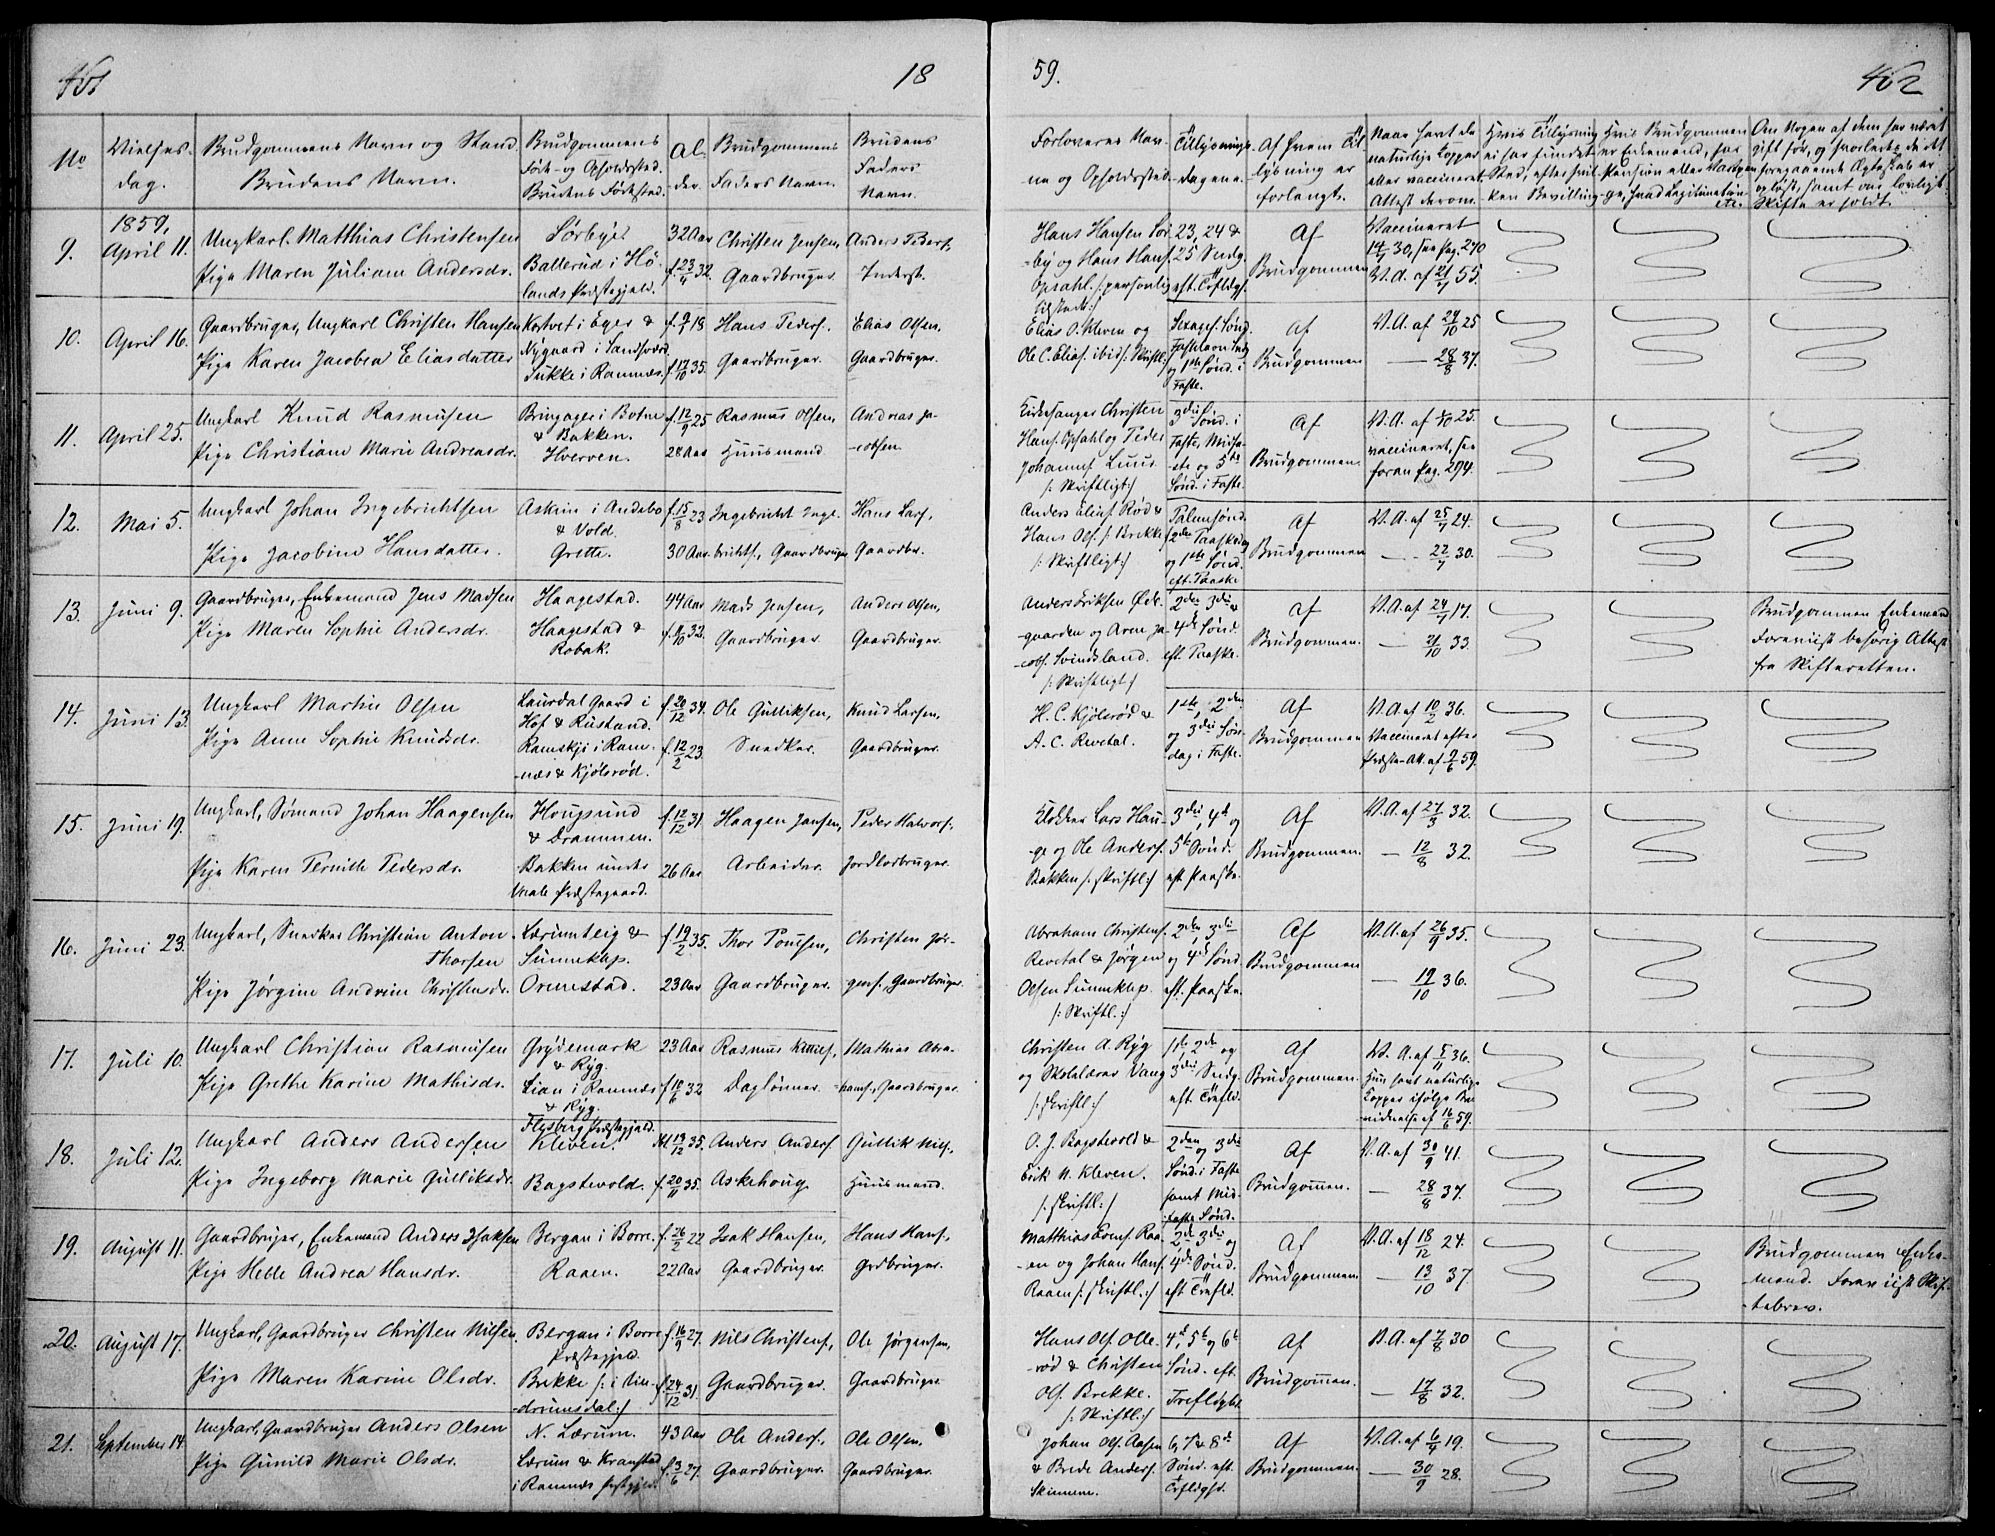 461
18
59.
462
No
Vielses-
dag.
Brudgommens Navn og Stand
Brudens Navn.
Brudgommens
Føde- og Opholdssted.
Brudens Fødested.
Al-
der.
Brudgommens
Faders Navn.
Brudens
Faders
Navn.
Forlovernes Nav-
ne og Opholdssted.
Tillysnings-
dagene.
Af hvem Til-
lysning er
forlangt.
Naar havt de
naturlige Kopper
eller vaccineret.
Attest derom.
Hvis Tillysning
ei har fundet
Sted, efter hvil-
ken Bevilling
Hvis Brudgommen
er Enkemand, har
Pension eller Vartpen-
ge, hvad Legitimation
etc.
Om Nogen af dem har været
gift før, og hvorledes da det
foregaaende Ægteskab er
opløst, samt om lovligt
Skifte er holdt.
9.
1859,
April 11.
Ungkarl. Matthias Christensen
Pige Maren Juliane Andersdr.
Sørbye
Ballerud i Hö-
lands Præstegjeld.
32 Aar
f. 23/4 32.
Christen Jensen,
Gaardbruger.
Anders Peders.,
Inderst.
Hans Hansen Sør-
by og Hans Hans.
Opsahl /: personlig
tilstede :/
23, 24 &
25 Søndg.
eft. Trefldgh.
Af
Brudgommen
Vaccineret
14/7 30, see Pag. 270
V. A. af 21/7 55.
10.
April 16.
Gaardbruger, Ungkarl Christen Hansen
Pige Karen Jacobea Eliasdatter
Kortvet i Eger &
Nygaard i Sandsvær
Sukke i Ramnæs.
f. 9/1 18
f. 17/10 35.
Hans Peders.
Gaardbruger.
Elias Olsen,
Gaardbruger.
Elias O. Kleven og
Ole C. Elias. ibid /: Skriftl. :/
Sexages. Sønd.
Fastelavn Sndg
og 1ste Sønd. i
Faste.
Af
Brudgommen
V. A. af 24/10 25
— 28/8 37.
11.
April 25.
Ungkarl Knud Rasmusen
Pige Christiane Marie Andreasdr.
Bringager i Botne
& Bakken.
Hverven.
f. 12/9 25
28 Aar
Rasmus Olsen,
Huusmand
Andreas Ja-
-cobsen
Kirkesanger Christen
Hans. Opsahl og Peder
Johannes. Luur.
/: Skriftligt :/
3die Sønd. i
Faste, Midfa-
ste og 5te
Sønd. i Faste.
Af
Brudgommen.
vaccineret, see
foran Pag. 294.
12.
Mai 5.
Ungkarl Johan Ingebrichtsen
Pige Jacobine Hansdatter.
Askim i Andebo
& Vold.
Grette.
f. 15/8 23
30 Aar
Ingebricht Inge-
brichts., Gaardbruger
Hans Lars.,
Gaardbr.
Anders Elias. Rød &
Hans Ols. Brekke
/: Skriftligt :/
Palmesønd.
2den Paaskedag
og 1ste Sønd.
eft. Paaske
Af
Brudgommen
V. A. af 25/7 24.
— 22/7 30.
13.
Juni 9.
Gaardbruger, Enkemand Jens Madsen
Pige Maren Sophie Andersdr.
Haagestad.
Haagestad &
Robak.
44 Aar
Mads Jensen,
Gaardbruger
Anders Olsen,
Gaardbruger.
Anders Eriksen Øde-
gaarden og Arne Ja-
-cobs. Svindsland.
/: Skriftligt :/
2den 3die &
4de Sønd.
eft. Paaske.
Af
Brudgommen.
V. A. af 24/7 17.
— 21/10 33.
Brudgommen Enkemand
Foreviist behørig Attest
fra Skifteretten.
14.
Juni 13.
Ungkarl Martin Olsen
Pige Anne Sophie Knudsdr.
Laurdal Gaard i
Hof & Rustand.
Ramskje i Ram-
-næs & Kjölsrød.
f. 20/12 34.
f. 12/2 23.
Ole Gulliksen,
Snedker.
Knud Larsen,
Gaardbruger.
H. C. Kjölsrød &
A. C. Revetal.
1ste, 2den
og 3die Søn-
dag i Faste.
Af
Brudgommen
V. A af 10/2 36.
Vaccineret efter
Præste-Att. af 9/6 59.
15.
Juni 19.
Ungkarl, Sømand Johan Haagensen
Pige Karen Pernille Pedersdr.
Hougsund
& Drammen.
Bakken under
Vaale Præstegaard.
f. 12/12 31.
26 Aar
Haagen Jansen,
Arbeider.
Peder Halvors.,
Jordlodbruger.
Klokker Lars Hau-
ge og Ole Anders.
Bakken /: skriftl :/
3die, 4de og
5te Sønd.
eft. Paaske.
Af
Brudgommen.
V. A. af 27/3 32.
— 12/8 32.
16.
Juni 23.
Ungkarl, Snedker Christian Anton
Thorsen
Pige Jørgine Andrine Christensdr.
Lærumteig &
Sunnekap.
Ormestad.
f. 19/2 35.
23 Aar
Thor Pousen,
Gaardbruger.
Christen Jør-
gens., Gaardbruger.
Abraham Christens.
Revetal & Jørgen
Olsen Sunnekap.
/: Skriftl. :/
2den, 3die
og 4de Sønd.
eft. Paaske.
Af
Brudgommen
V. A. af 26/9 35.
— 19/10 36.
17.
Juli 10.
Ungkarl Christian Rasmusen
Pige Grethe Karine Mathisdr.
Grydemark
& Ryg.
Lian i Ramnæs
& Ryg.
23 Aar
Rasmus Kittils.,
Dagløner.
Mathias Abra-
hams., Gaardbruger.
Christen A. Ryg
og Skolelærer Vang
/: skriftl :/
1ste, 2den og
3die Sndg.
eft. Trefld.
Af
Brudgommen.
V. A. af 5/11 36.
Hun havt naturlige
Kopper ifølge Be-
vidnelse af 16/6 59.
18.
Juli 12.
Ungkarl Anders Andersen
Pige Ingeborg Marie Gulliksdr.
Flesberg Præstegjeld.
Kleven.
Bagstevold.
13/12 35.
f. 20/11 35.
Anders Anders.
Askehoug
Gullik Nils.,
Huusmand.
O. J. Bagstevold &
Erik N. Kleven.
/: skriftl :/
2den og 3die
Sønd. i Faste
samt Mid-
faste Sønd.
Af
Brudgommen.
V. A. af 30/9 41.
— 28/8 37.
19.
August 11.
Gaardbruger, Enkemand Anders Isaksen
Pige Helle Andrea Hansdr.
Bergan i Borre.
Raaen.
f. 26/2 22
22 Aar
Isak Hansen,
Gaardbruger.
Hans Hans.,
Grdbruger.
Matthias Evens. Raa-
en og Johan Hans.
Raaen /: skriftl. :/
2de 3die og
4de Sønd.
eft Trefld.
Af
Brudgommen.
V. A. af 18/12 24.
— 13/10 37.
Brudgommen Enke-
mand. Foreviist Skif-
-tebrev.
20.
August 17.
Ungkarl, Gaardbruger Christen Nilsen.
Pige Maren Karine Olsdr.
Bergan i Borre
Præstegjeld.
Brekke /: i Vill-
-drumsdal :/
f. 16/9 27.
f. 24/12 31.
Nils Christens.,
Gaardbruger.
Ole Jørgensen,
Gaardbruger.
Hans Ols. Olle-
-rød & Christen
Ols. Brekke.
/: Skriftl. :/
4de, 5te og 6te
Sønd. eft.
Trefldght.
Af
Brudgommen.
V. A. af 7/8 30
— 17/8 32.
21.
September 14.
Ungkarl, Gaardbruger Anders Olsen
Pige Gunild Marie Olsdr.
N. Lærum.
Lærum & Kranstad
i Ramnæs Prstgjeld.
43 Aar
f. 3/6 27.
Ole Anders.,
Gaardbruger.
Ole Olsen,
Gaardbruger.
Johan Ols. Aasen
& Brede Anders.
Skinnene.
6, 7 & 8de
Sønd. eft.
Trefldghd.
Af
Brudgommen.
V. A. af 6/9 19.
— 30/9 28.